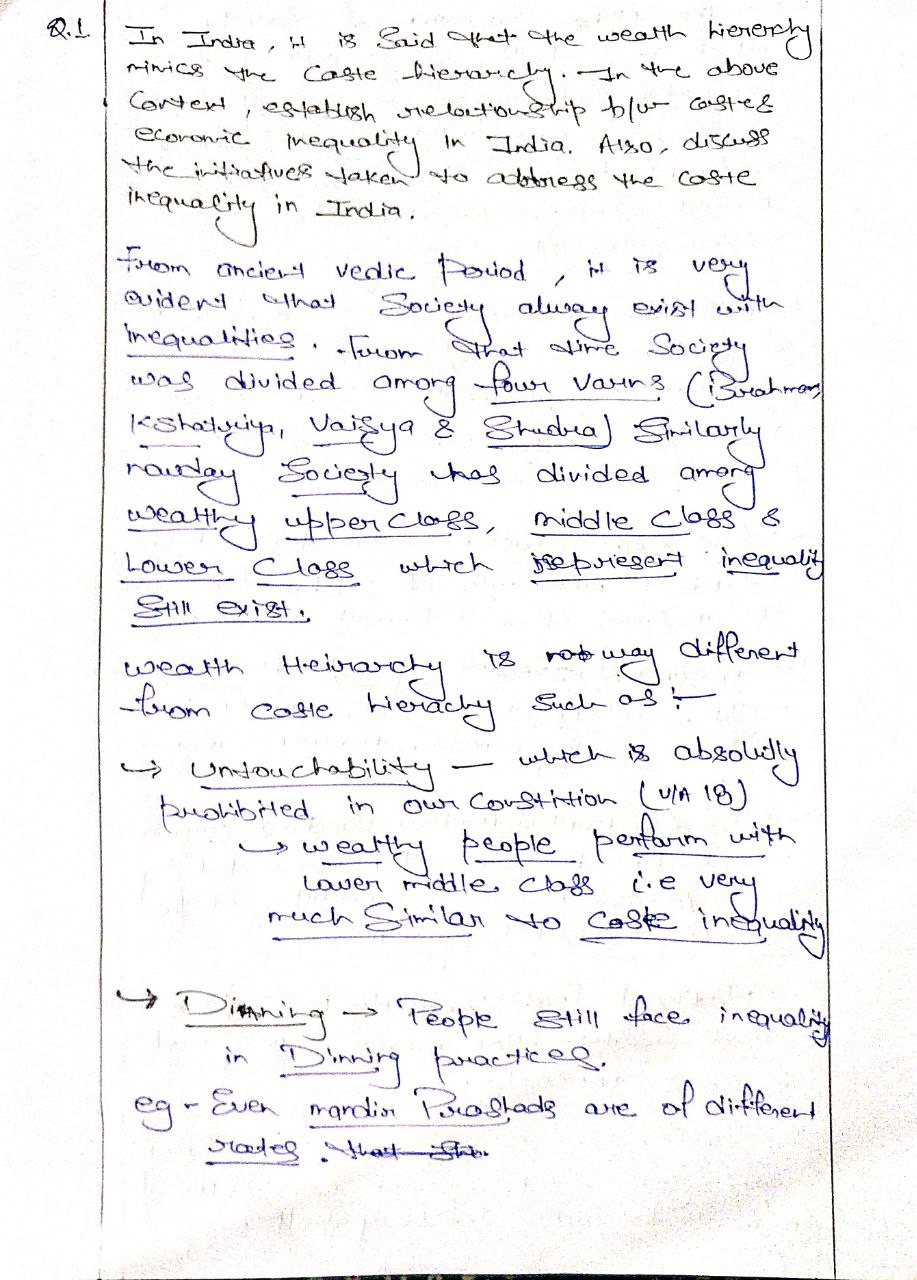 Q.1 In India, it is Said that the wealth hiererchy
mimics the Caste hierarchy. In the above
Context, establish relationship b/w caste &
economic inequality in India. Also, discuss
the initiatives taken to address the caste
inequality in India.
From ancient vedic Period, it is very
evident that Society alway exist with
inequalities. From that time Society
was divided among four varns (Brahman,
Kshatriya, Vaisya & Shudra) Similarly
nowday Society has divided among
wealthy upper class, middle class &
Lower Class which represent inequality
Still exist.
wealth Heirarchy is way different
from caste hierachy Such as :-
→ Untouchability - which is absolutly
prohibited in our Constition (U/A 18)
→ wealthy people perform with
Lower middle class i.e very
much Similar to caste inequality
→ Dinning → People still face inequality
in Dinning practices.
eg - Even mandir Prashads are of different
rates.